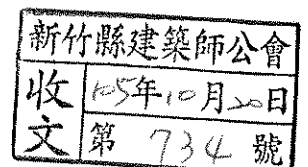 新竹縣建築師公會
收文
105年10月20日
第 734 號